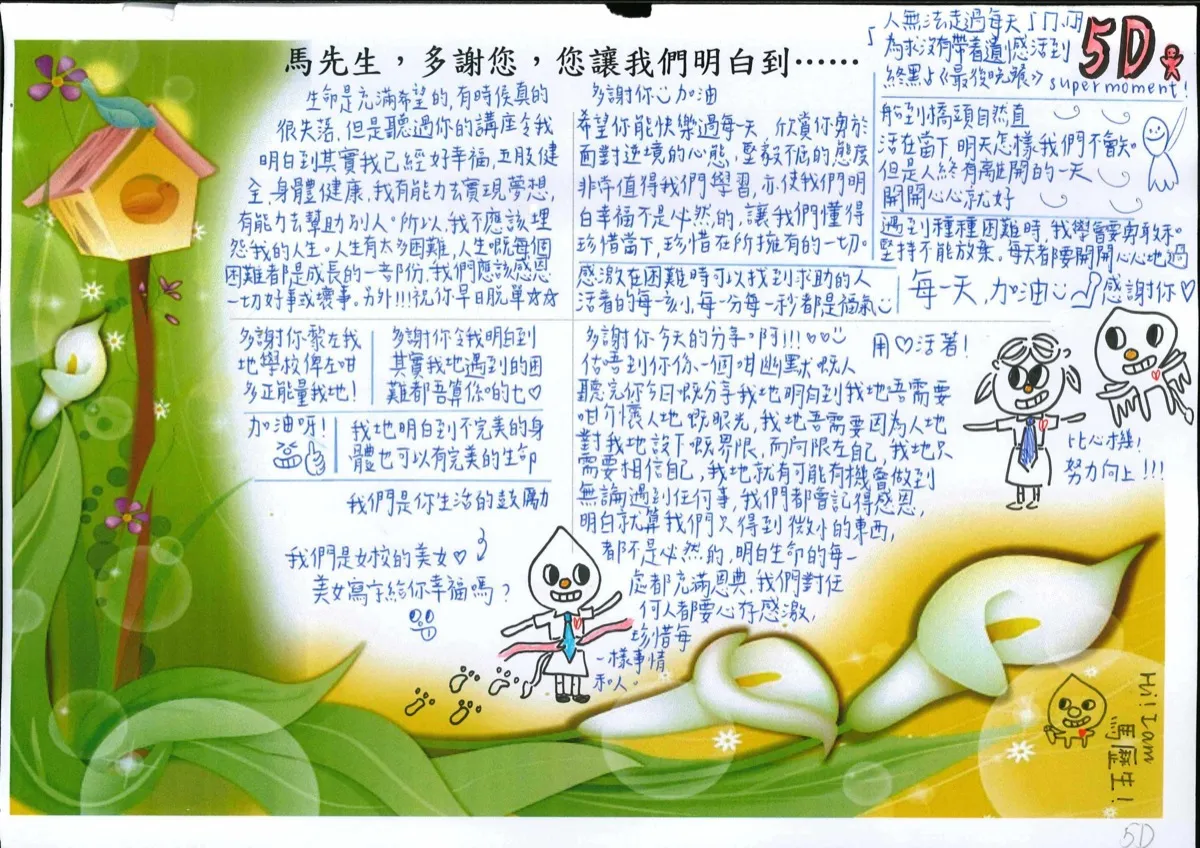 馬先生，多謝您，您讓我們明白到……
5D
生命是充滿希望的，有時候真的
很失落，但是聽過你的講座令我
明白到其實我已經好幸福，五肢健
全，身體健康，我有能力去實現夢想，
有能力去幫助別人。所以，我不應該埋
怨我的人生。人生有太多困難，人生嘅每個
困難都是成長的一部份，我們應該感恩
一切好事或壞事。另外!!!祝你早日脫單
多謝你 加油
希望你能快樂過每一天 欣賞你勇於
面對逆境的心態，堅毅不屈的態度
非常值得我們學習，亦使我們明
白幸福不是必然的，讓我們懂得
珍惜當下，珍惜在所擁有的一切。
感激在困難時可以找到求助的人
活著的每一刻，每一分每一秒都是福氣
人無法走過每天
為求沒有帶着遺憾活到
終點《最後晚飯》supermoment!
船到橋頭自然直
活在當下 明天怎樣我們不會知。
但是人終有離開的一天
開開心心就好
遇到種種困難時，我學會要勇敢和。
堅持不能放棄。每天都要開開心心地過
每一天，加油 感謝你♡
多謝你黎左我
地學校俾左咁
多正能量我地！
多謝你令我明白到
其實我地遇到的困
難都吾算你的也♡
加油呀！
我地明白到不完美的身
體也可以有完美的生命
我們是你生活的鼓勵
我們是女校的美女♡
美女寫字給你幸福嗎？
多謝你今天的分享。啊!!!♡♡
估唔到你係一個咁幽默嘅人
聽完你今日嘅分享我地明白到我地吾需要
咁介懷人地嘅眼光，我地吾需要因為人地
對我地設下嘅界限，而向限左自己，我地只
需要相信自己，我地就有可能有機會做到
無論遇到任何事，我們都會記得感恩，
明白就算我們只得到微小的東西，
都不是必然的，明白生命的每一
處都充滿恩典，我們對任
何人都要心存感激，
珍惜每
一樣事情
和人。
用♡活著！
比心機！
努力向上!!!
Hi! I am
馬歷生！
5D